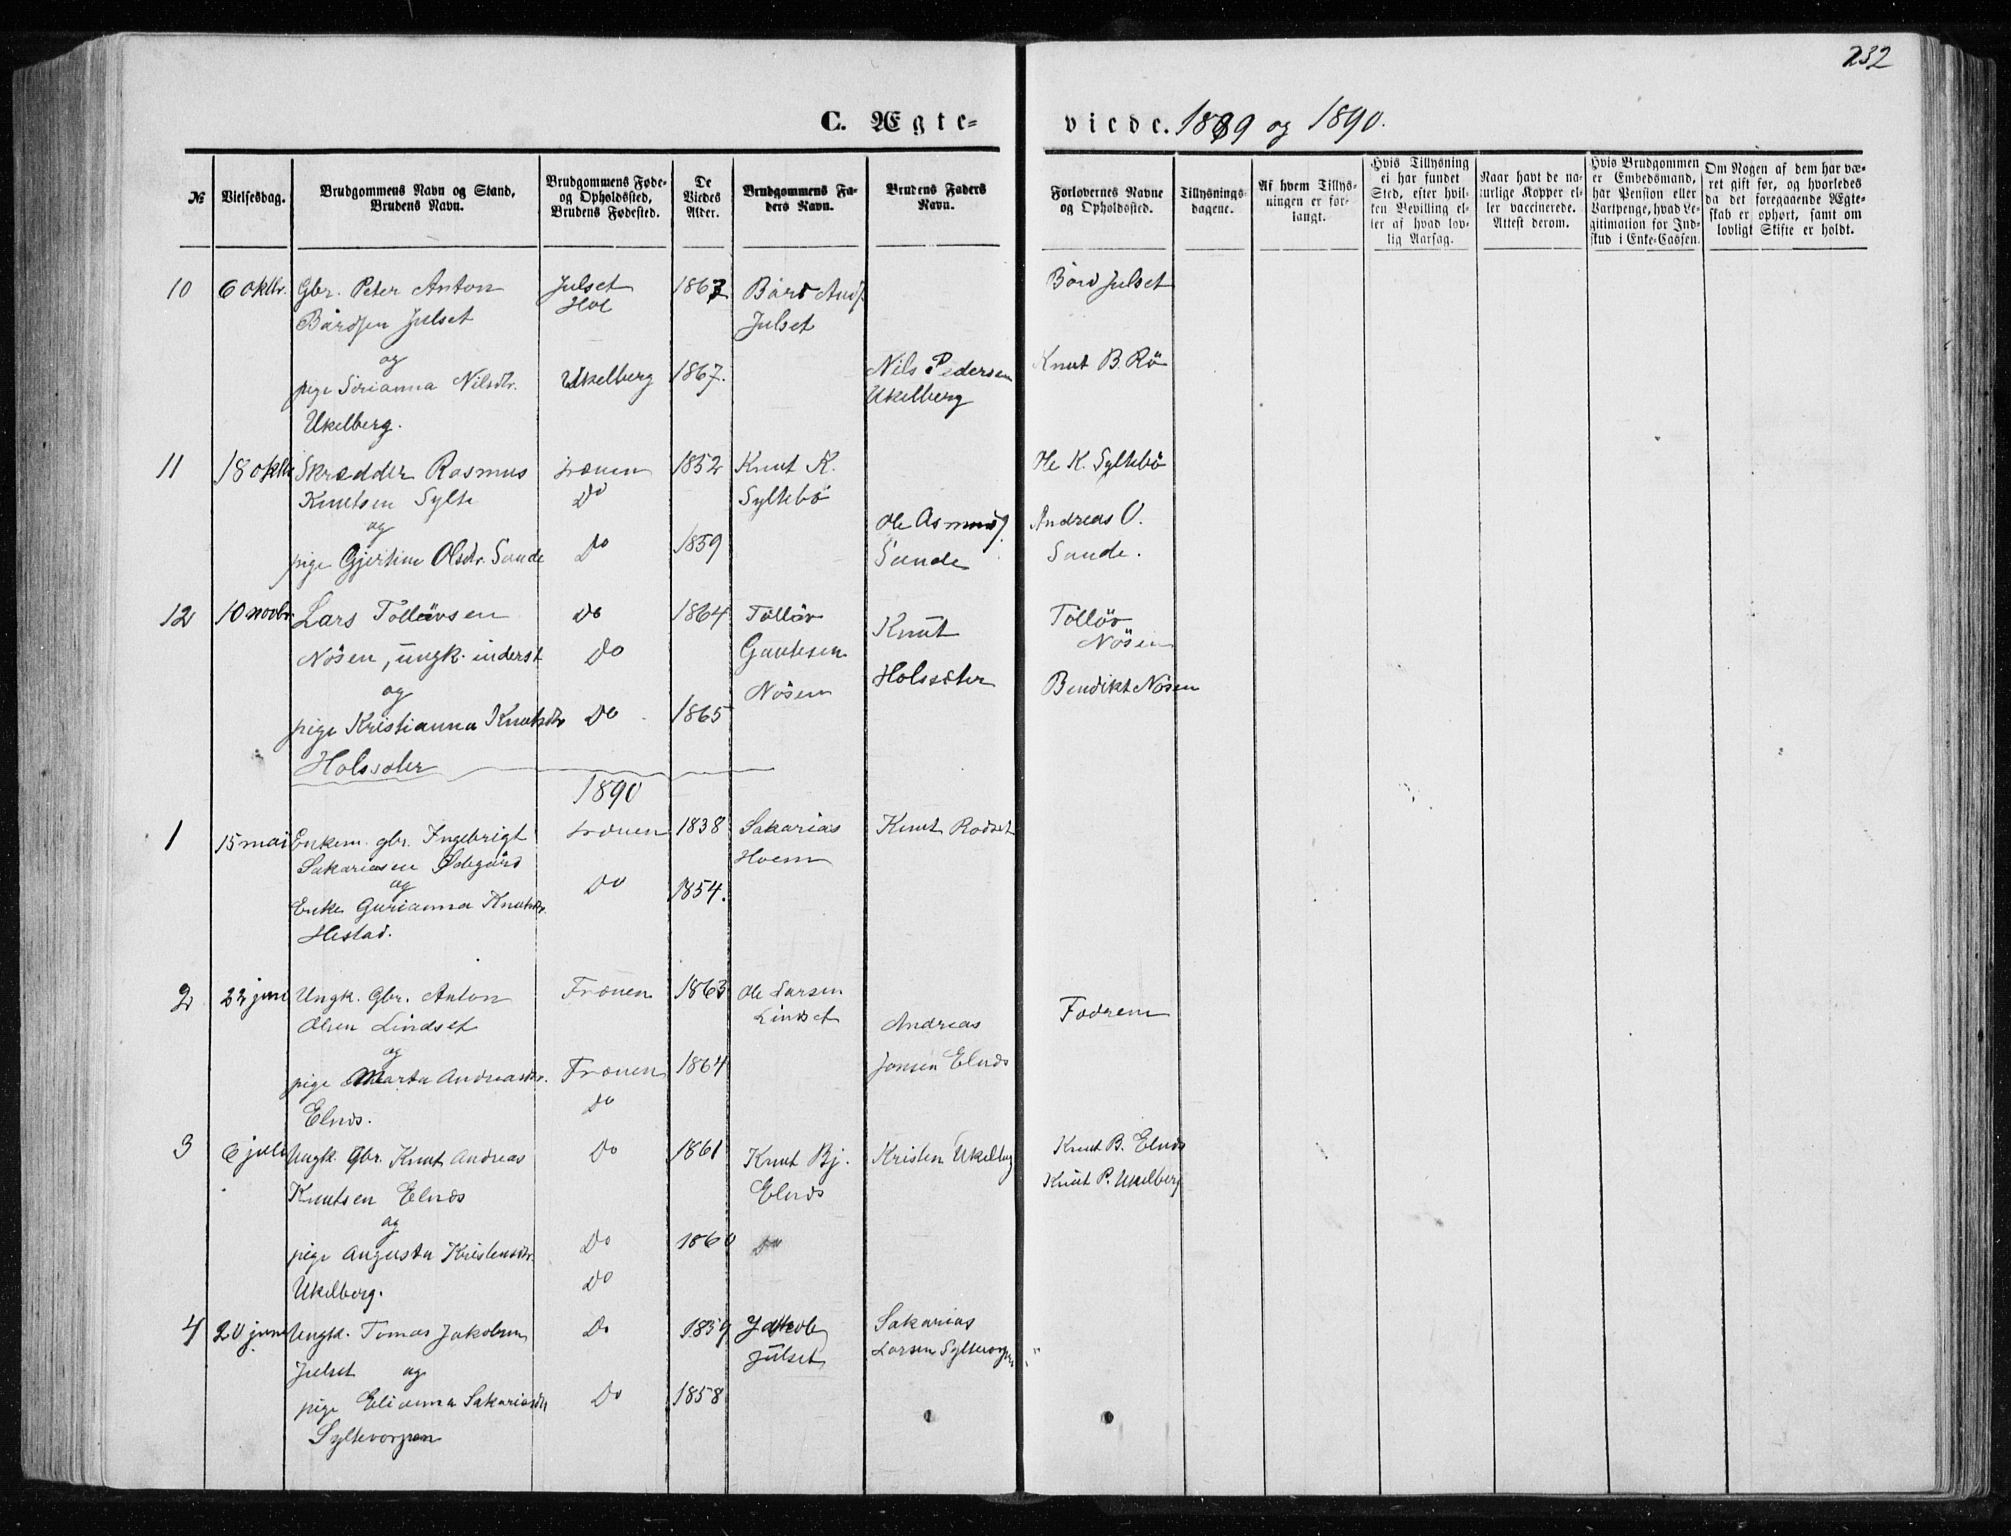 232
C. Ægte- viede. 1889 og 1890.
№
Vielsesdag.
Brudgommens Navn og Stand, Brudens Navn.
Brudgommens Føde- og Opholdssted, Brudens Fødested.
De Viedes Alder.
Brudgommens Faders Navn.
Brudens Faders Navn.
Forlovernes Navne og Opholdssted.
Tillysningsdagene.
Af hvem Tillysningen er forlangt.
Hvis Tillysning ei har fundet Sted, efter hvilken Bevilling eller af hvad lovlig Aarsag.
Naar havt de naturlige Kopper eller vaccinerede. Attest derom.
Hvis Brudgommen er Embedsmand, har Pension eller Vartpenge, hvad Legitimation for Indskud i Enke-Cassen.
Om Nogen af dem har været gift før, og hvorledes da det foregaaende Ægteskab er ophørt, samt om lovligt Skifte er holdt.
10 6 oktbr. Gbr. Peter Anton Julset 1867 Bård And. Bård Julset
Bårdsen Julset Hol Julset
og
pige Serianna Nilsdtr. Ukelberg 1867. Nils Pedersen Knut B. Rö
Ukelberg. Ukelberg
11 18 oktb Skrædder Rasmus Frænen 1852 Knut K. Ole K. Syltebö
Knutsen Sylte Do Syltebö
og Ole Asmuns. Andreas O.
pige Gjertine Olsdtr. Sande Do 1859 Sande Sande.
12 10 novbr Lars Tollövsen Do 1864 Tollöv Knut Tollöv
Nösen, ungk. inderst Do Gautesen Holssæter Nösen
og Nösen Bendikt Nösen
pige Kristianna Knutsdtr Do 1865
Holssæter
1890
1 15 mai Enkem. gbr. Ingebrigt Frænen 1838 Sakarias Knut Rödset
Sakariasen Ödegård Hoem
og Do 1854.
Enke Gurianna Knutsdtr.
Hestad.
2 22 juni Ungk. Gbr. Anton Frænen 1863 Ole Larsen Fædrene
Olsen Lindset Lindset Andreas
og
pige Marta Andreasdtr. Frænen 1864 Jonsen Elnæs
Elnæs. Do
3 6 juli Ungk. Gbr. Knut Andreas Do 1861 Knut Bj. Kristen Ukelberg Knut B. Elnæs
Knutsen Elnæs Elnæs Knut P. Ukelberg
og
pige Augusta Kristensdtr. Do 1860 Do
Ukelberg. Do
4 20 juni Ungk. Tomas Jakobsen Do 1859 Jakob Sakarias
Julset og Julset Larsen Syltevorpen „
pige Elianna Sakariasdtr Do 1858
Syltevorpen